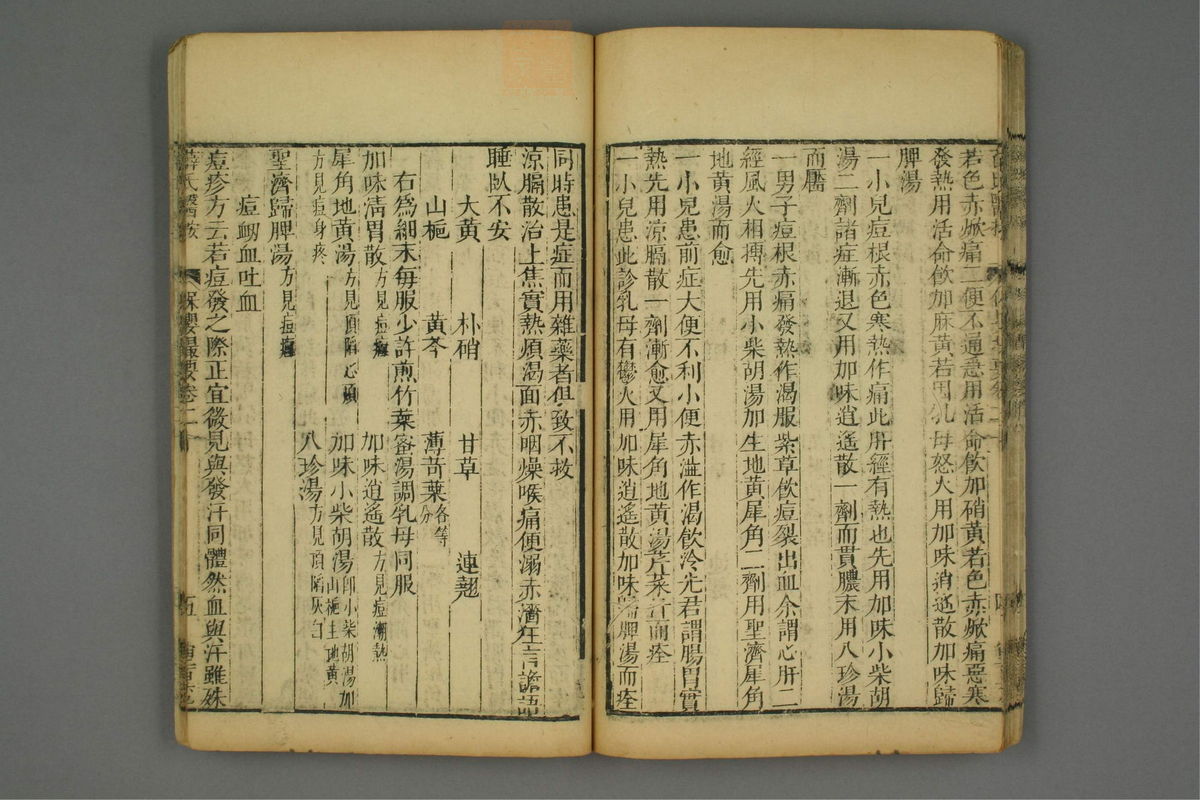 若色赤焮痛二便不通急用活命飲加硝黃若色赤焮痛惡寒
發熱用活命飲加麻黃若因乳母怒火用加味逍遙散加味歸
脾湯
一小兒痘根赤色寒熱作痛此肝經有熱也先用加味小柴胡
湯二劑諸症漸退又用加味逍遙散一劑而貫膿末用八珍湯
而靨
一男子痘根赤痛發熱作渴服紫草飲痘裂出血余謂心肝二
經風火相搏先用小柴胡湯加生地黃犀角二劑用聖濟犀角
地黃湯而愈
一小兒患前症大便不利小便赤澁作渴飲冷先君謂腸胃實
熱先用涼膈散一劑漸愈又用犀角地黃湯芹菜汁而痊
一小兒患此診乳母有鬱火用加味逍遙散加味歸脾湯而痊
同時患是症而用雜藥者俱致不救
涼膈散治上焦實熱煩渴面赤咽燥喉痛便溺赤濇狂言譫語
睡臥不安
大黃 朴硝 甘草 連翹
山梔 黃芩 薄苛葉各等分
右為細末每服少許煎竹葉蜜湯調乳母同服
加味淸胃散方見痘癰 加味逍遙散方見痘潮熱
犀角地黃湯方見頂陷心頭 加味小柴胡湯卽小柴胡湯加山梔生地黃
方見痘身疼 八珍湯方見頂陷灰白
聖濟歸脾湯方見痘癰
痘衂血吐血
痘疹方云若痘發之際正宜微見與發汗同體然血與汗雖殊
薛氏醫按 保嬰撮要卷二 五